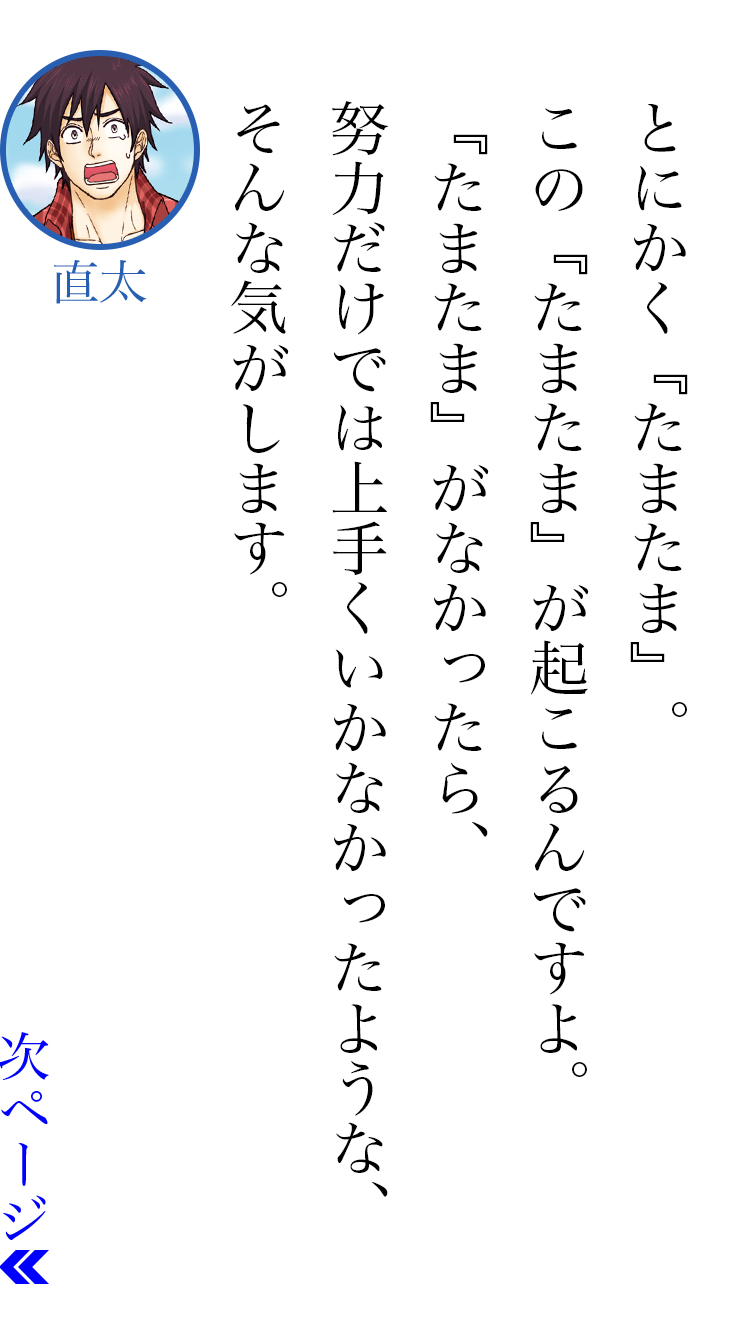 とにかく『たまたま』。
この『たまたま』が起こるんですよ。
『たまたま』がなかったら、
努力だけでは上手くいかなかったような、
そんな気がします。
直太
次ページ